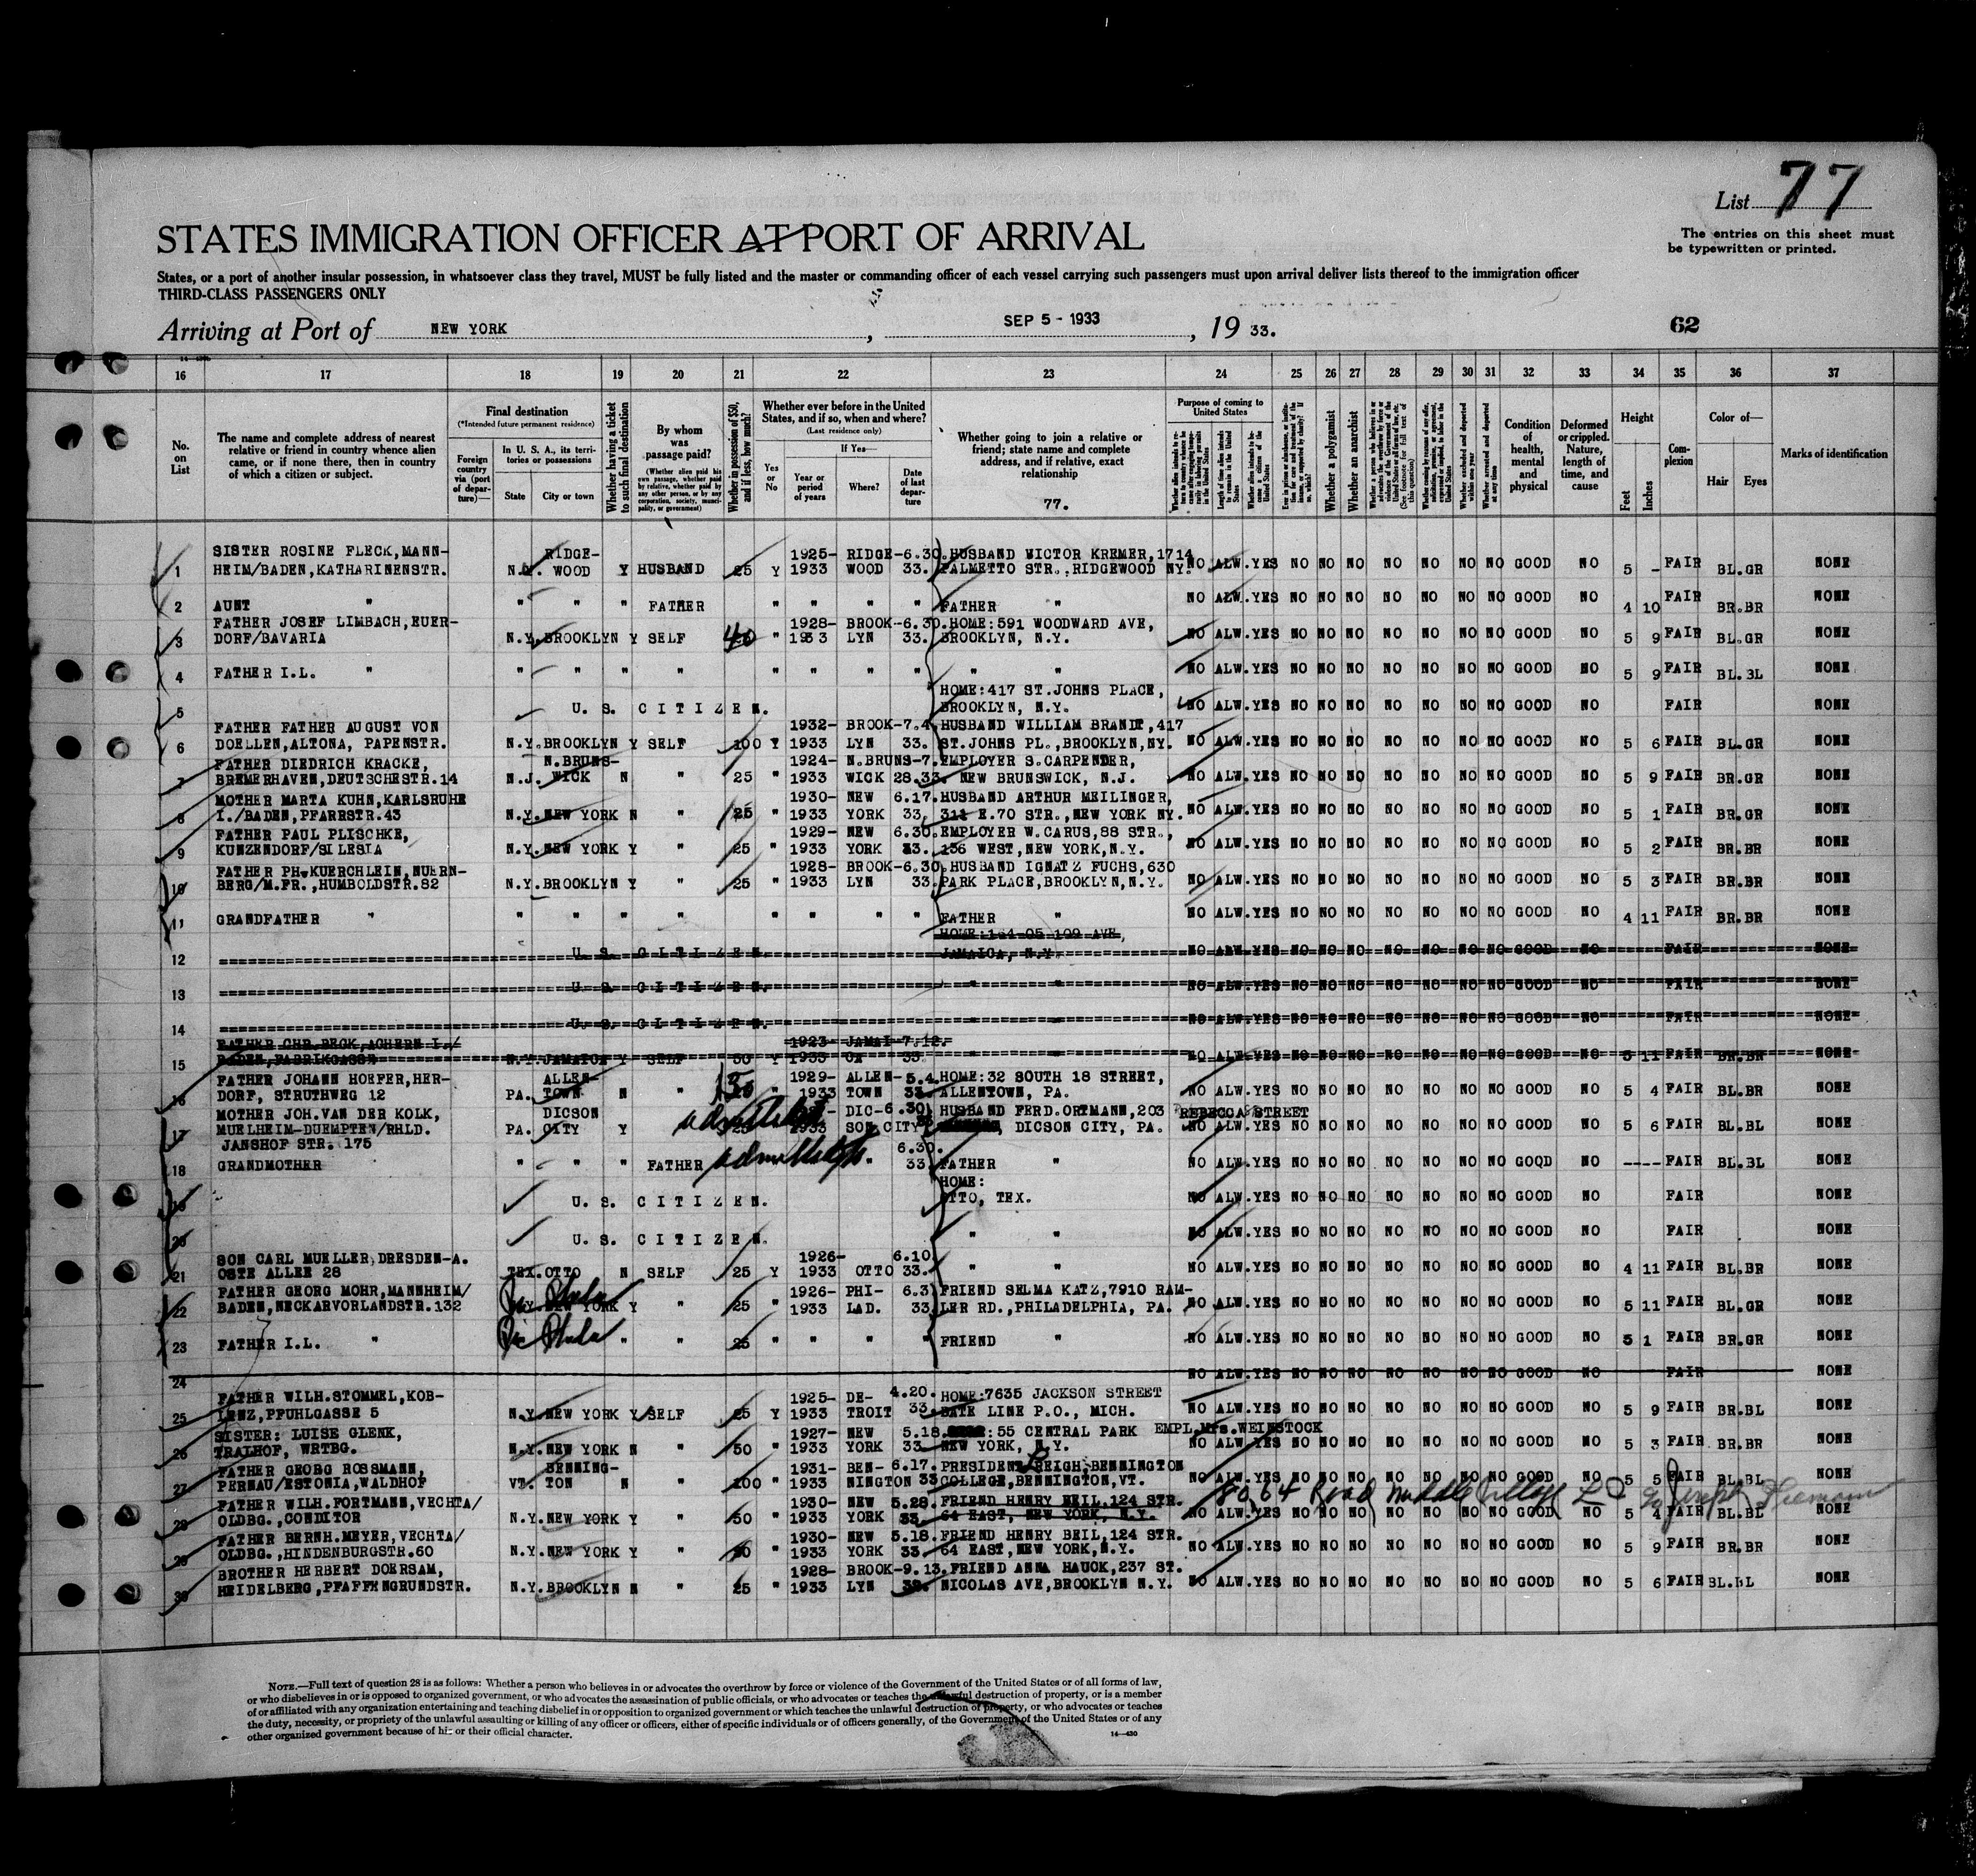 List 77
The entries on this sheet must
be typewritten or printed.
STATES IMMIGRATION OFFICER AT PORT OF ARRIVAL
States, or a port of another insular possession, in whatsoever class they travel, MUST be fully listed and the master or commanding officer of each vessel carrying such passengers must upon arrival deliver lists thereof to the immigration officer
THIRD-CLASS PASSENGERS ONLY
Arriving at Port of NEW YORK, SEP 5 - 1933, 19 33.
62
16 17 18 19 20 21 22 23 24 25 26 27 28 29 30 31 32 33 34 35 36 37
No. on List
The name and complete address of nearest relative or friend in country whence alien came, or if none there, then in country of which a citizen or subject.
Final destination
(*Intended future permanent residence)
Foreign country via (port of departure)—
In U. S. A., its territories or possessions
State City or town
Whether having a ticket to such final destination
By whom was passage paid?
(Whether alien paid his own passage, whether paid by relative, whether paid by any other person, or by any corporation, society, municipality, or government)
Whether in possession of $50, and if less, how much?
Whether ever before in the United States, and if so, when and where?
(Last residence only)
Yes or No
If Yes—
Year or period of years
Where?
Date of last departure
Whether going to join a relative or friend; state name and complete address, and if relative, exact relationship
77.
Purpose of coming to United States
Length of time alien intends to remain in the United States
Whether a polygamist
Whether an anarchist
Condition of health, mental and physical
Deformed or crippled. Nature, length of time, and cause
Height
Feet Inches
Complexion
Color of—
Hair Eyes
Marks of identification
SISTER ROSINE FLECK,MANN- RIDGE- 1925- RIDGE-6.30. HUSBAND VICTOR KREMER,1714
1 HEIM/BADEN,KATHARINENSTR. N.Y. WOOD Y HUSBAND 25 Y 1933 WOOD 33. PALMETTO STR.,RIDGEWOOD NY. NO ALW.YES NO NO NO NO NO NO NO GOOD NO 5 - FAIR BL.GR NONE
2 AUNT " " " " FATHER " " " " FATHER " NO ALW.YES NO NO NO NO NO NO NO GOOD NO 4 10 FAIR BR.BR NONE
FATHER JOSEF LIMBACH,EUER- 1928- BROOK-6.30. HOME:591 WOODWARD AVE,
3 DORF/BAVARIA N.Y.BROOKLYN Y SELF 40 " 1933 LYN 33. BROOKLYN, N.Y. NO ALW.YES NO NO NO NO NO NO NO GOOD NO 5 9 FAIR BL.GR NONE
4 FATHER I.L. " " " " " " " " " " " NO ALW.YES NO NO NO NO NO NO NO GOOD NO 5 9 FAIR BL.BL NONE
HOME:417 ST.JOHNS PLACE,
5 U. S. CITIZEN. BROOKLYN, N.Y. NO ALW.YES NO NO NO NO NO NO NO GOOD NO FAIR NONE
FATHER FATHER AUGUST VON 1932- BROOK-7.4. HUSBAND WILLIAM BRANDT,417
6 DOELLEN,ALTONA, PAPENSTR. N.Y.BROOKLYN Y SELF 100 Y 1933 LYN 33. ST.JOHNS PL.,BROOKLYN,NY. NO ALW.YES NO NO NO NO NO NO NO GOOD NO 5 6 FAIR BL.GR NONE
FATHER DIEDRICH KRACKE, N.BRUNS- 1924- N.BRUNS-7. EMPLOYER S.CARPENDER,
7 BREMERHAVEN,DEUTSCHESTR.14 N.J. WICK N " 25 " 1933 WICK 28.33. NEW BRUNSWICK, N.J. NO ALW.YES NO NO NO NO NO NO NO GOOD NO 5 9 FAIR BR.GR NONE
MOTHER MARTA KUHN,KARLSRUHE 1930- NEW 6.17. HUSBAND ARTHUR MEILINGER,
8 I./BADEN,PFARRSTR.43 N.Y.NEW YORK N " 25 " 1933 YORK 33. 311 E.70 STR.,NEW YORK NY. NO ALW.YES NO NO NO NO NO NO NO GOOD NO 5 1 FAIR BR.GR NONE
FATHER PAUL PLISCHKE, 1929- NEW 6.30. EMPLOYER W.CARUS,88 STR.,
9 KUNZENDORF/SILESIA N.Y.NEW YORK Y " 25 " 1933 YORK 33. 136 WEST,NEW YORK,N.Y. NO ALW.YES NO NO NO NO NO NO NO GOOD NO 5 2 FAIR BR.BR NONE
FATHER PH.KUERCHLEIN,NUERN- 1928- BROOK-6.30. HUSBAND IGNATZ FUCHS,630
10 BERG/M.FR.,HUMBOLDSTR.82 N.Y.BROOKLYN Y " 25 " 1933 LYN 33. PARK PLACE,BROOKLYN,N.Y. NO ALW.YES NO NO NO NO NO NO NO GOOD NO 5 3 FAIR BR.BR NONE
11 GRANDFATHER " " " " " " " " " FATHER " NO ALW.YES NO NO NO NO NO NO NO GOOD NO 4 11 FAIR BR.BR NONE
HOME:164-05 109 AVE,
12 U. S. CITIZEN. JAMAICA, N.Y. NO ALW.YES NO NO NO NO NO NO NO GOOD NO FAIR NONE
13 U. S. CITIZEN. " " NO ALW.YES NO NO NO NO NO NO NO GOOD NO FAIR NONE
14 U. S. CITIZEN. NO ALW.YES NO NO NO NO NO NO NO GOOD NO FAIR NONE
FATHER CHR.BECK,ACHERN I./ 1923- JAMAI-7.12.
15 BADEN,FABRIKGASSE N.Y.JAMAICA Y SELF 50 Y 1933 CA 33. NO ALW.YES NO NO NO NO NO NO NO GOOD NO 5 11 FAIR BR.BR NONE
FATHER JOHANN HOEFER,HER- ALLEN- 1929- ALLEN-5.4. HOME:32 SOUTH 18 STREET,
16 DORF, STRUTHWEG 12 PA. TOWN N " " 1933 TOWN 33. ALLENTOWN, PA. NO ALW.YES NO NO NO NO NO NO NO GOOD NO 5 4 FAIR BL.BR NONE
MOTHER JOH.VAN DER KOLK, DICSON admitted DIC-6.30. HUSBAND FERD.ORTMANN,203 REBECCA STREET
17 MUELHEIM-DUEMPTEN/RHLD. PA. CITY Y 1933 SON CITY DICSON CITY, PA. NO ALW.YES NO NO NO NO NO NO NO GOOD NO 5 6 FAIR BL.BL NONE
JANSHOF STR. 175 6.30.
18 GRANDMOTHER " " " FATHER admitted " 33. FATHER " NO ALW.YES NO NO NO NO NO NO NO GOOD NO ---- FAIR BL.BL NONE
HOME:
19 U. S. CITIZEN. OTTO, TEX. NO ALW.YES NO NO NO NO NO NO NO GOOD NO FAIR NONE
20 U. S. CITIZEN. " " NO ALW.YES NO NO NO NO NO NO NO GOOD NO FAIR NONE
SON CARL MUELLER,DRESDEN-A. 1926- 6.10.
21 OSTE ALLEE 28 TEX.OTTO N SELF 25 Y 1933 OTTO 33. " " NO ALW.YES NO NO NO NO NO NO NO GOOD NO 4 11 FAIR BL.BR NONE
FATHER GEORG MOHR,MANNHEIM/ 1926- PHI- 6.3. FRIEND SELMA KATZ,7910 RAM-
22 BADEN,NECKARVORLANDSTR.132 N.Y.NEW YORK Y " 25 " 1933 LAD. 33. LER RD.,PHILADELPHIA, PA. NO ALW.YES NO NO NO NO NO NO NO GOOD NO 5 11 FAIR BL.GR NONE
23 FATHER I.L. " " " 25 " " " " FRIEND " NO ALW.YES NO NO NO NO NO NO NO GOOD NO 5 1 FAIR BR.GR NONE
24 NO ALW.YES NO NO NO NO NO NO NO GOOD NO FAIR NONE
FATHER WILH.STOMMEL,KOB- 1925- DE- 4.20. HOME:7635 JACKSON STREET
25 LENZ,PFUHLGASSE 5 N.Y.NEW YORK Y SELF 25 Y 1933 TROIT 33. DATE LINE P.O., MICH. NO ALW.YES NO NO NO NO NO NO NO GOOD NO 5 9 FAIR BR.BL NONE
SISTER: LUISE GLENK, 1927- NEW 5.18. :55 CENTRAL PARK EMPL.Mrs.WEINSTOCK
26 TRALHOF, WRTBG. N.Y.NEW YORK N " 50 " 1933 YORK 33. NEW YORK, N.Y. NO ALW.YES NO NO NO NO NO NO NO GOOD NO 5 3 FAIR BR.BR NONE
FATHER GEORG ROSSMANN, BENNING- 1931- BEN- 6.17. PRESIDENT LEIGH,BENNINGTON
27 PERNAU/ESTONIA,WALDHOF VT. TON N " 100 " 1933 NINGTON 33. COLLEGE,BENNINGTON,VT. NO ALW.YES NO NO NO NO NO NO NO GOOD NO 5 5 FAIR BL.BL NONE
FATHER WILH.FORTMANN,VECHTA/ 1930- NEW 5.28. FRIEND HENRY BEIL,124 STR. 8064 Road Middle Village L I Joseph
28 OLDBG.,CONDITOR N.Y.NEW YORK Y " 50 " 1933 YORK 33. 64 EAST, NEW YORK, N.Y. NO ALW.YES NO NO NO NO NO NO NO GOOD NO 5 4 FAIR BL.BL NONE
FATHER BERNH.MEYER,VECHTA/ 1930- NEW 5.18. FRIEND HENRY BEIL,124 STR.
29 OLDBG.,HINDENBURGSTR.60 N.Y.NEW YORK Y " " 1933 YORK 33. 64 EAST,NEW YORK,N.Y. NO ALW.YES NO NO NO NO NO NO NO GOOD NO 5 9 FAIR BR.BR NONE
BROTHER HERBERT DOERSAM, 1928- BROOK-9.13. FRIEND ANNA HAUCK,237 ST.
30 HEIDELBERG,PFAFFENGRUNDSTR. N.Y.BROOKLYN N " 25 " 1933 LYN NICOLAS AVE,BROOKLYN N.Y. NO ALW.YES NO NO NO NO NO NO NO GOOD NO 5 6 FAIR BL.BL NONE
NOTE.—Full text of question 28 is as follows: Whether a person who believes in or advocates the overthrow by force or violence of the Government of the United States or of all forms of law,
or who disbelieves in or is opposed to organized government, or who advocates the assassination of public officials, or who advocates or teaches the unlawful destruction of property, or is a member
of or affiliated with any organization entertaining and teaching disbelief in or opposition to organized government or which teaches the unlawful destruction of property, or who advocates or teaches
the duty, necessity, or propriety of the unlawful assaulting or killing of any officer or officers, either of specific individuals or of officers generally, of the Government of the United States or of any
other organized government because of his or their official character.
14—430